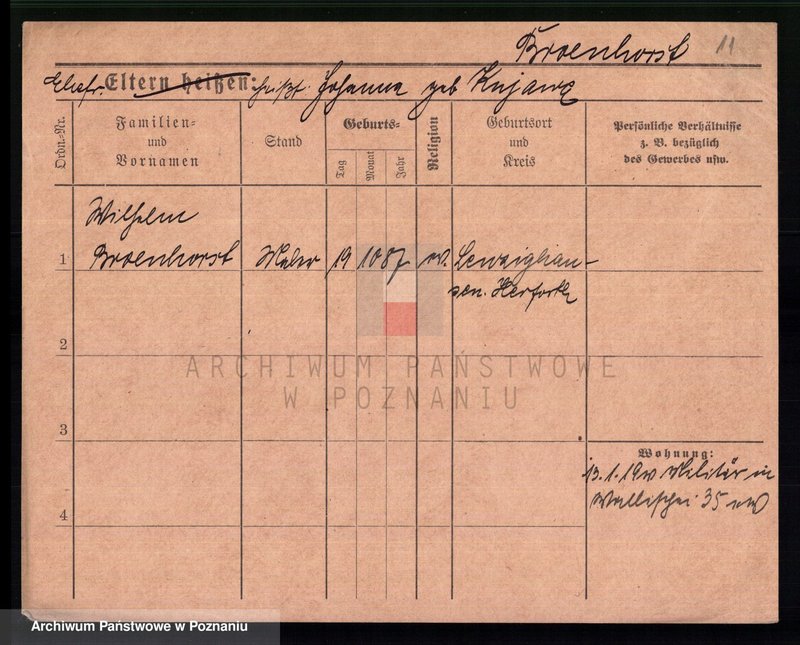 Broenhorst 11
Ehefr. Eltern heißen: heißt. Johanna geb Kujawa
Ordn.-Nr.
Familien-
und
Vornamen
Stand
Geburts-
Tag
Monat
Jahr
Religion
Geburtsort
und
Kreis
Persönliche Verhältnisse
z. B. bezüglich
des Gewerbes usw.
Wilhelm
1 Broenhorst Maler 19 10 87 ev.
sen. Herforth
2
ARCHIWUM PAŃSTWOWE
W POZNANIU
3
Wohnung:
13.1.19 v Militär in
Wallischei 35
4
Archiwum Państwowe w Poznaniu